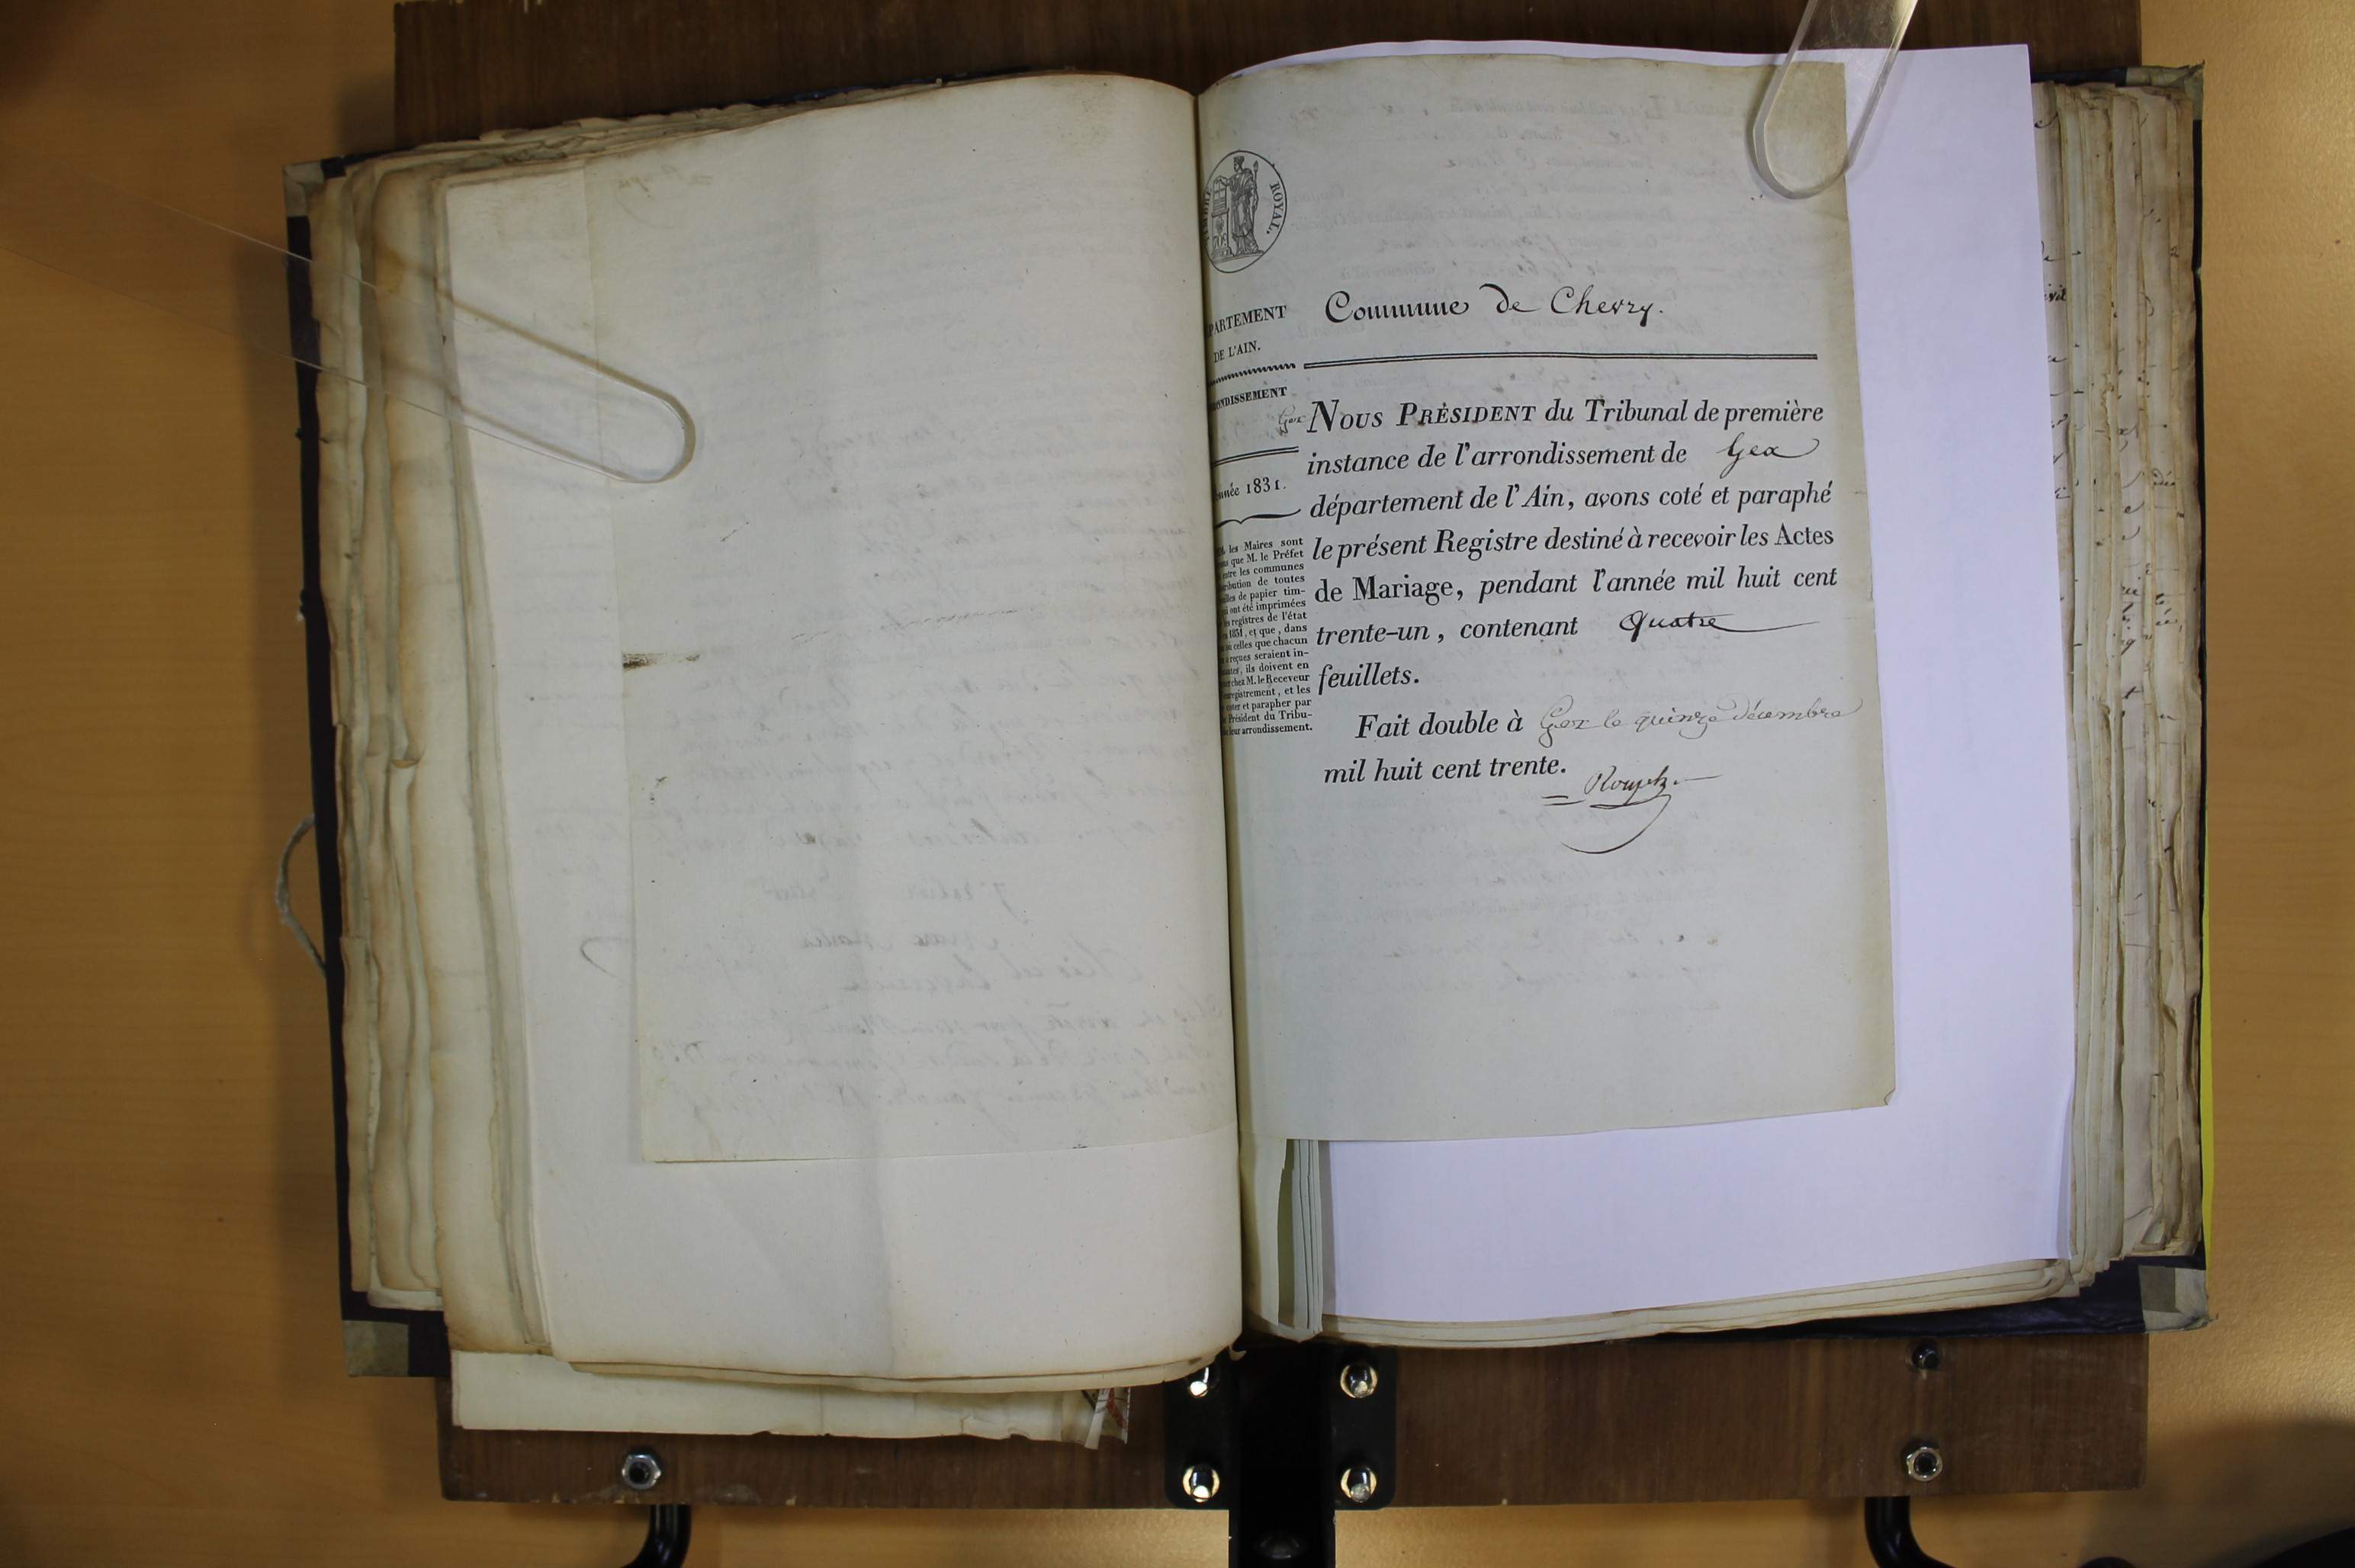 ROYAL.
Commune de Chevry.
PARTEMENT
DE L'AIN.
ONDISSEMENT
Gex
nnée 1831.
les Maires sont
que M. le Préfet
entre les communes
ribution de toutes
illes de papier tim-
i ont été imprimées
les registres de l'état
1831, et que, dans
celles que chacun
reçues seraient in-
ils doivent en
chez M. le Receveur
enregistrement, et les
coter et parapher par
Président du Tribu-
leur arrondissement.
NOUS PRÉSIDENT du Tribunal de première
instance de l'arrondissement de Gex
département de l'Ain, avons coté et paraphé
le présent Registre destiné à recevoir les Actes
de Mariage, pendant l'année mil huit cent
trente-un, contenant Quatre
feuillets.
Fait double à Gex le quinze décembre
mil huit cent trente.